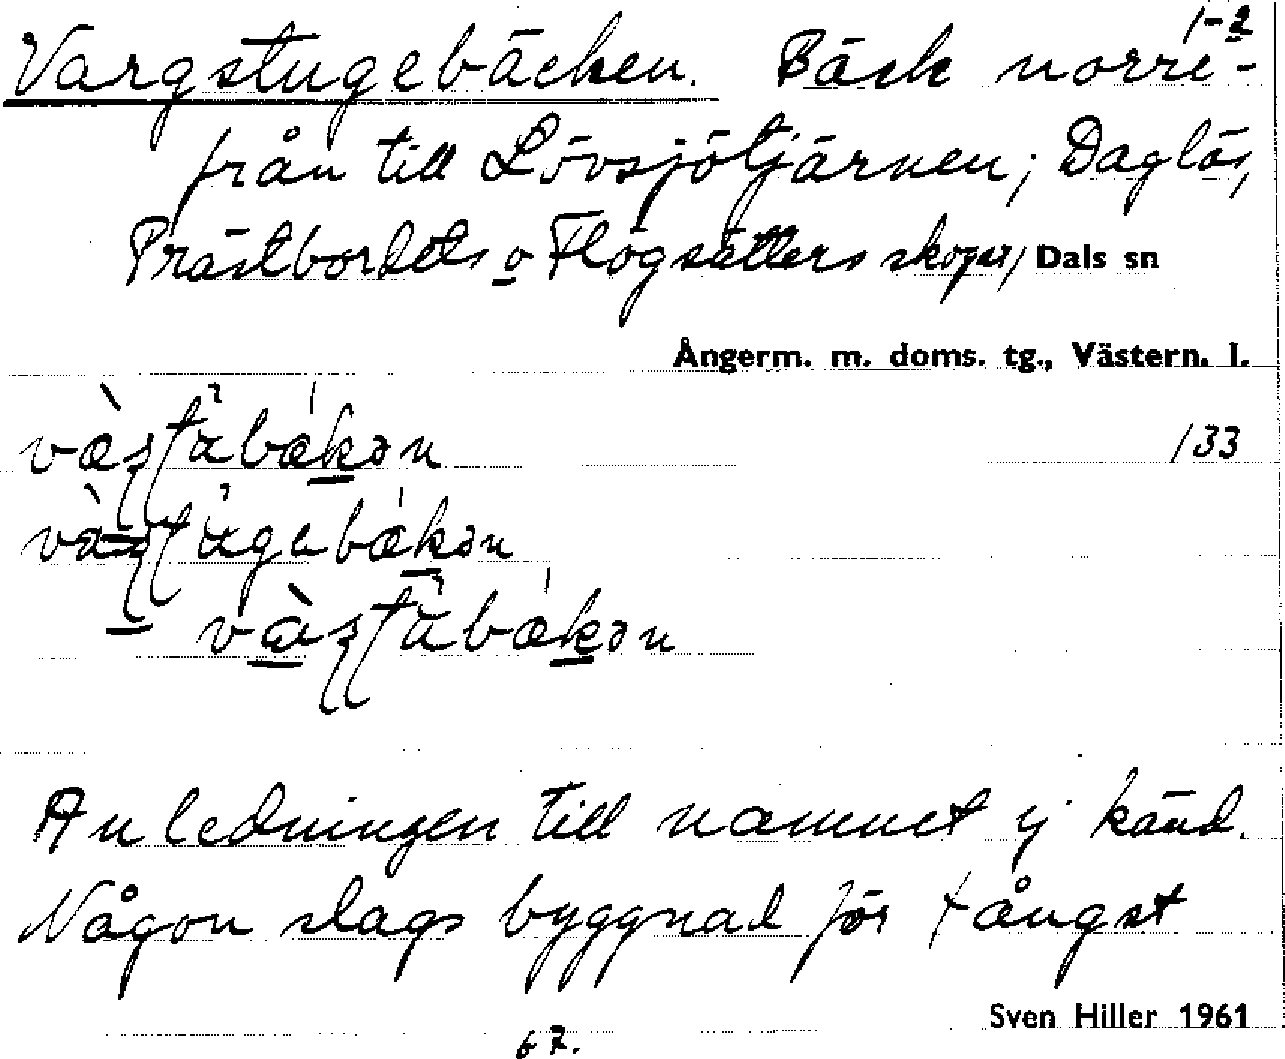 1-2
Vargstugebäcken. Bäck norri-
från till Lövsjötjärnen; Dagläs,
Prästbordets o Flögsätters skogar, Dals sn
Ångerm. m. doms. tg., Västern. l.
133
Anledningen till namnet ej känd.
Någon slags byggnad för fångst
Sven Hiller 1961
67.